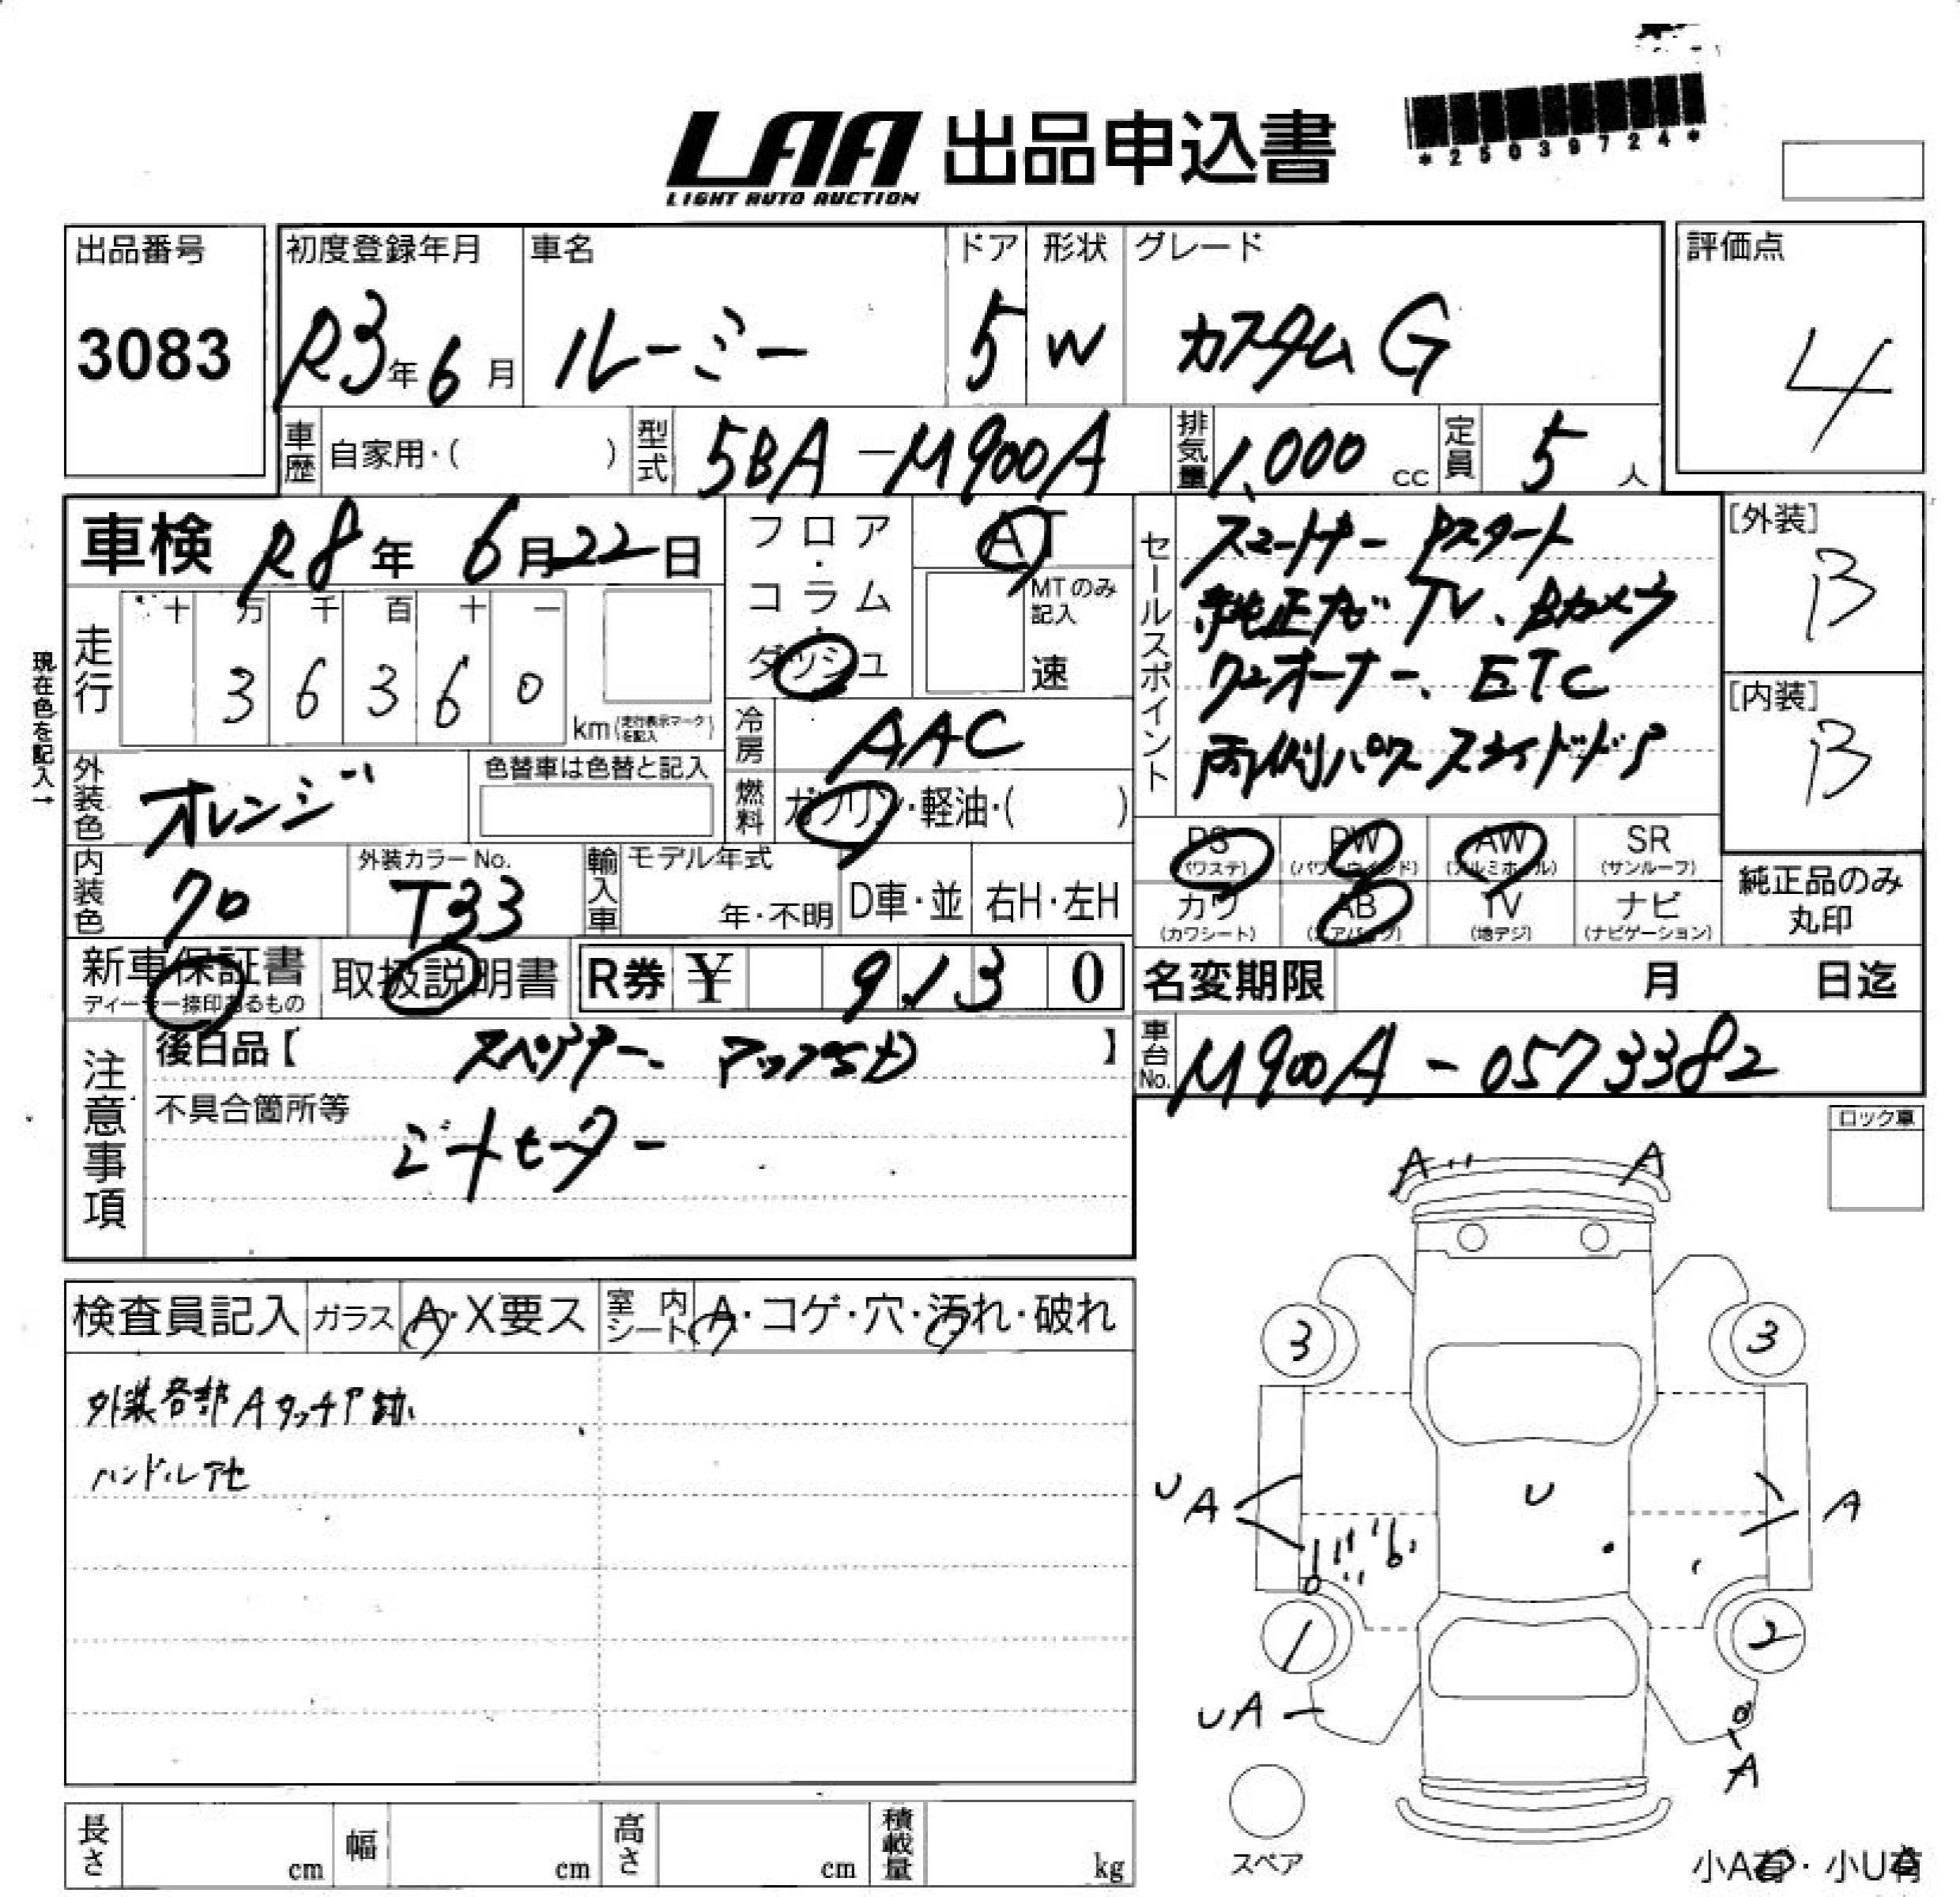 LAA 出品申込書
LIGHT AUTO AUCTION
*25039724*
出品番号
3083
初度登録年月
R3年6月
車名
ルーミー
ドア
5
形状
W
グレード
カスタムG
評価点
4
車歴 自家用・( )
型式 5BA-M900A
排気量 1,000 cc
定員 5 人
車検 R8年 6月22日
フロア・コラム・ダッシュ
AT
MTのみ記入
速
現在色を記入→
走行
十 万 千 百 十 一
3 6 3 6 0
km(走行表示マークを記入)
冷房 AAC
燃料 ガソリン・軽油・( )
外装色 オレンジ
色替車は色替と記入
内装色 クロ
外装カラーNo.
T33
輸入車 モデル年式
年・不明
D車・並
右H・左H
セールスポイント
スマートキー Pスタート
純正ナビ TV、Bカメラ
ワンオーナー、ETC
両側パワースライドドア
[外装]
B
[内装]
B
PS (パワステ)
PW (パワーウインド)
AW (アルミホイール)
SR (サンルーフ)
カワ (カワシート)
AB (エアバッグ)
TV (地デジ)
ナビ (ナビゲーション)
純正品のみ丸印
新車保証書
ディーラー捺印あるもの
取扱説明書
R券 ¥ 9,130
名変期限 月 日迄
車台No. M900A-0573382
注意事項
後日品【 スペアキー 】
不具合箇所等
シートヒーター
ロック車
検査員記入
ガラス A・X要ス
室内シート A・コゲ・穴・汚れ・破れ
外装各部Aタッチア跡
ハンドルアセ
A A
3 3
U A
U
A
1 2
UA
A
スペア
長さ cm
幅 cm
高さ cm
積載量 kg
小A有・小U有